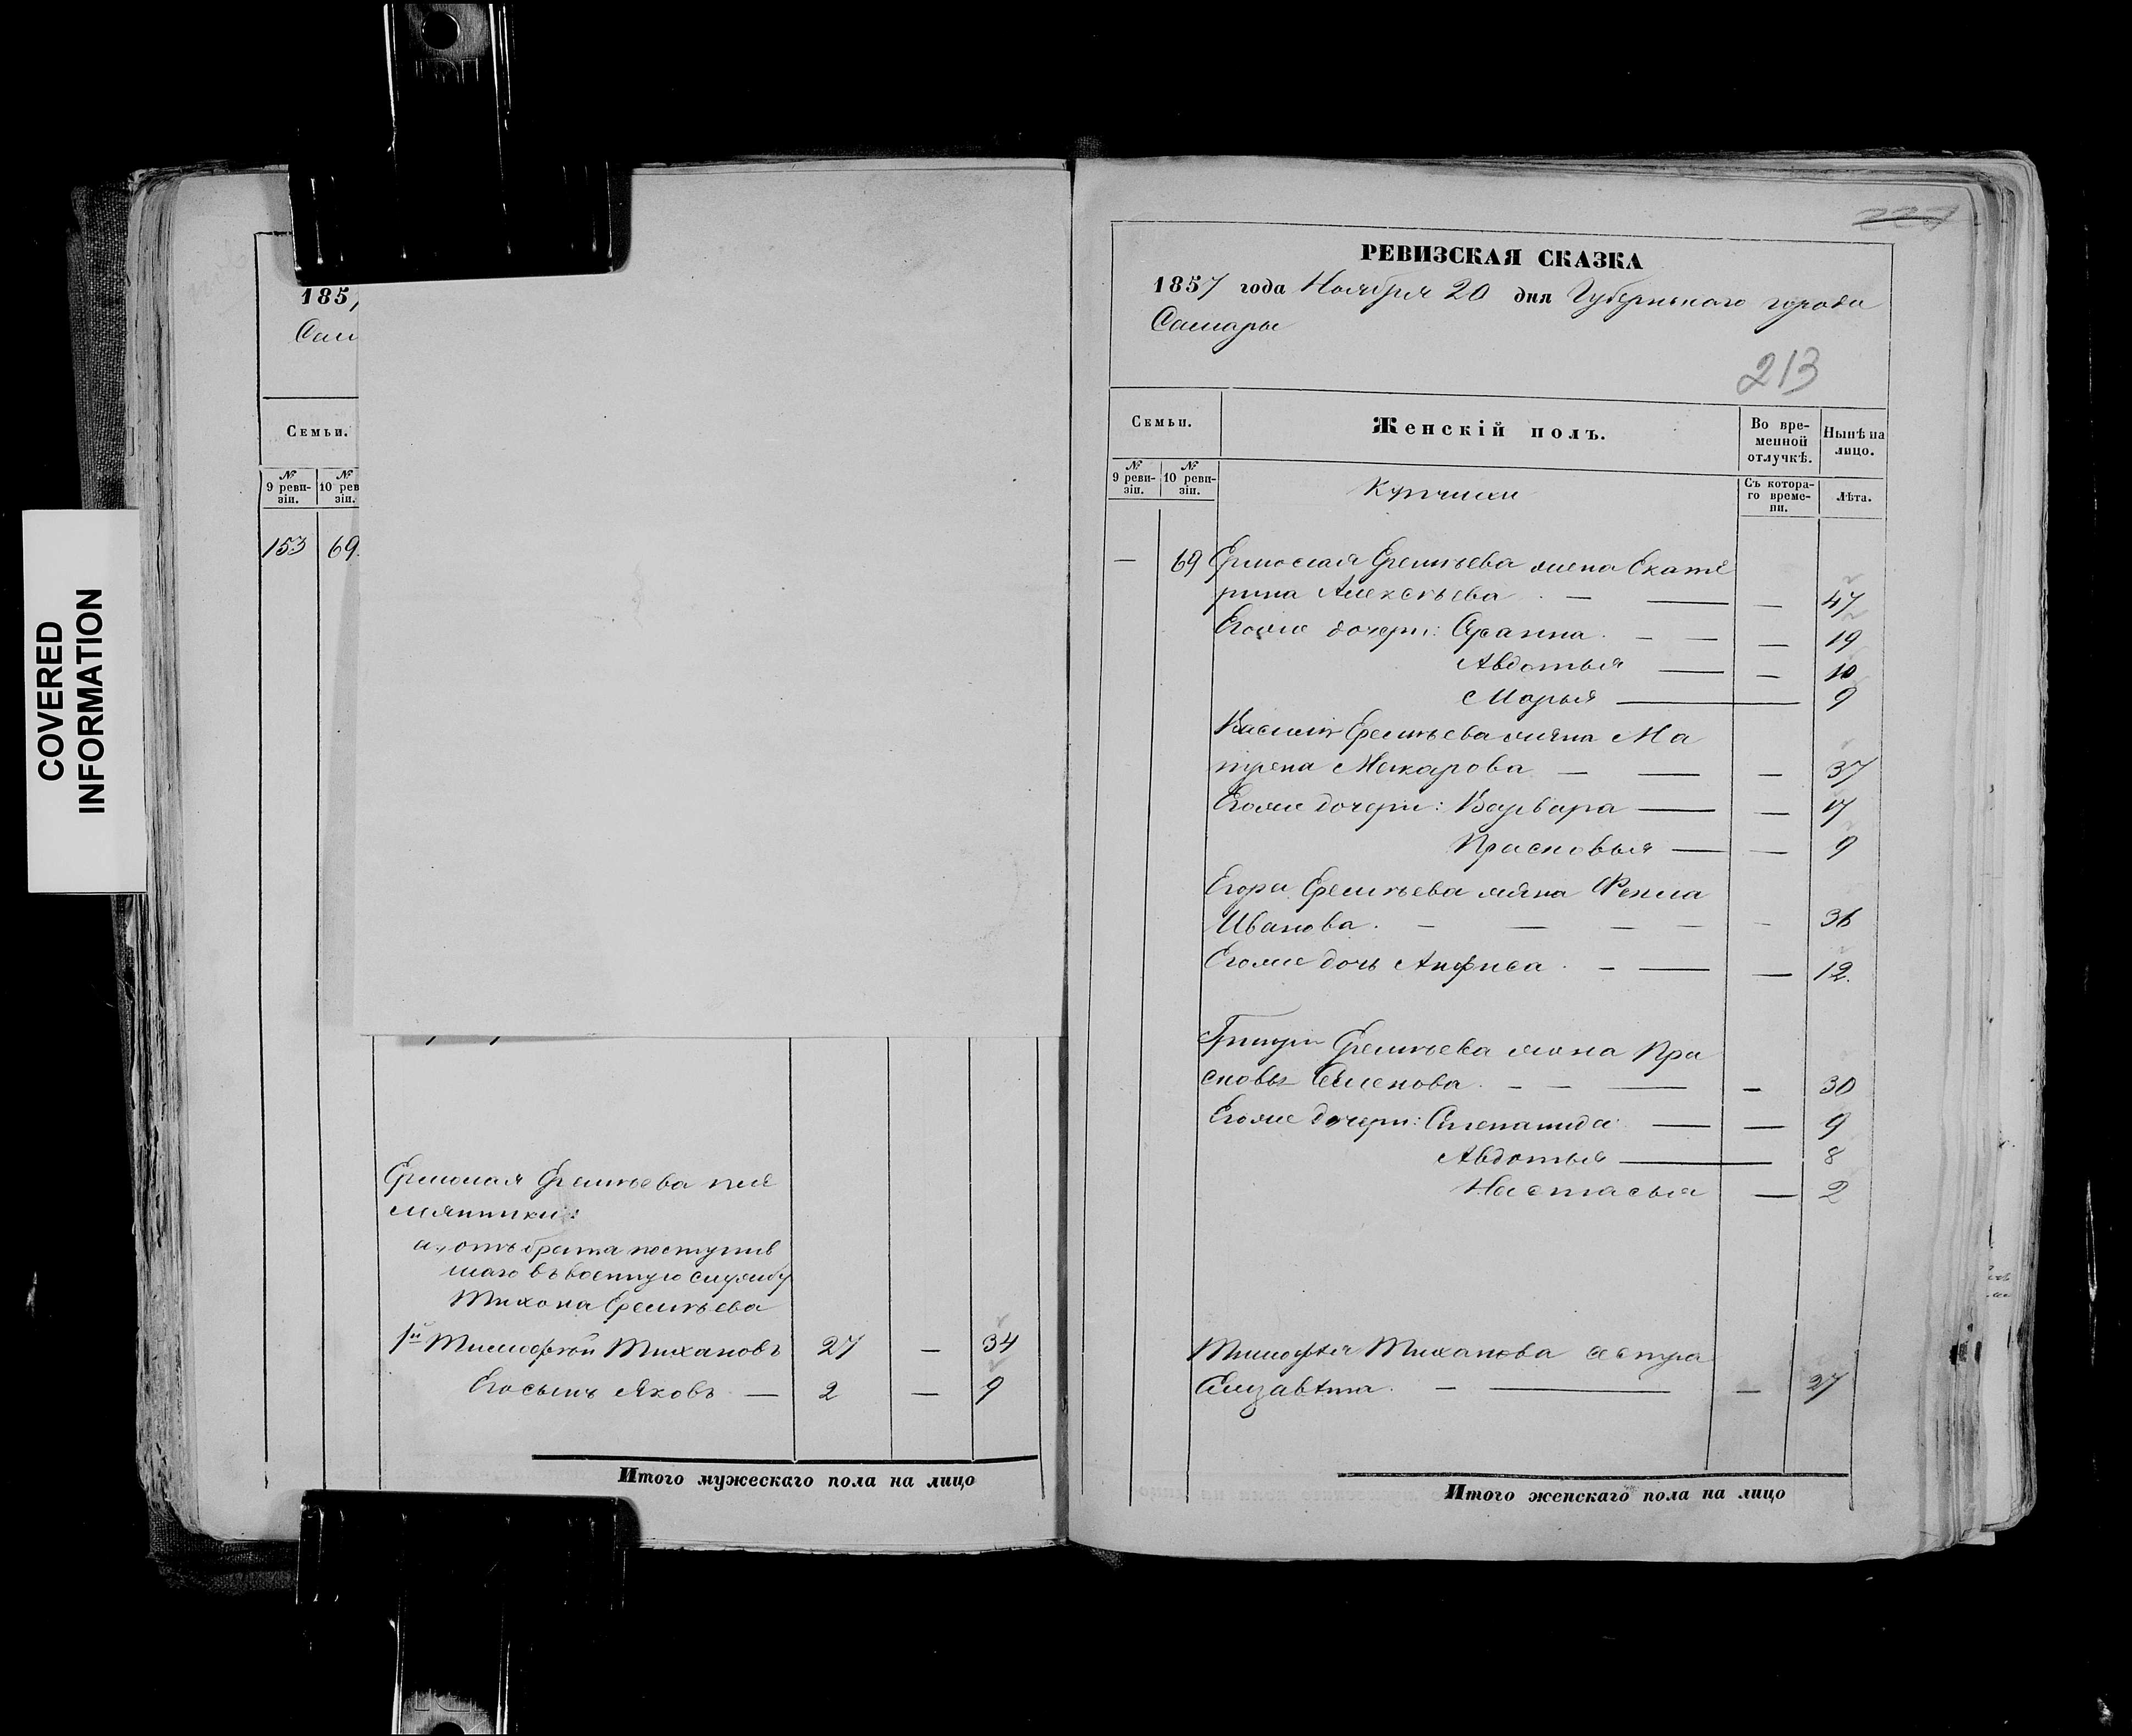 COVERED
INFORMATION
185
Сам
Семьи.
№
9 реви-
зіи.
№
10 рев
зіи.
153
69.
Ермолая Еремѣева пле
мянники:
а., отъ брата поступив
шаго въ военную службу
Тихона Еремѣева
1й Тимофей Тихановъ 27 — 34
Его сынъ Яковъ — 2 — 9
Итого мужескаго пола на лицо
227
РЕВИЗСКАЯ СКАЗКА
1857 года Ноября 20 дня Губернскаго города
Самары
213
Семьи.
Женскій полъ.
Во вре-
менной
отлучкѣ.
Нынѣ на
лицо.
№
9 реви-
зіи.
№
10 реви-
зіи.
Купчихи
Съ котора-
го време-
ни.
Лѣта.
— 69 Ермолая Еремѣева жена Екате
рина Алексѣева . — — — 47
Егоже дочери: — — — 19
Авдотья — — 10
Марья — 9
Василія Еремѣева жена Ма
трена Макарова — — — 37
Егоже дочери: Варвара — — 17
Прасковья — — 9
Егора Еремѣева жена Фекла
Иванова. — — — — — 36
Егоже дочь Анфиса . — — — 12.
Григорія Еремѣева жена Пра
сковья Семенова . — — — — 30
Егоже дочери: Степанида — — 9
Авдотья — 8
Настасья — 2
Тимофея Тиханова сестра
Елизавѣта. — — — 27
Итого женскаго пола на лицо